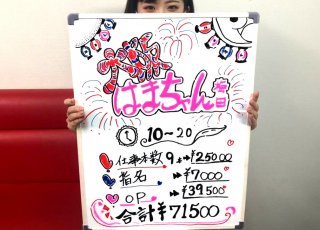 はまちゃん
10~20
仕事本数 9本→¥25000
指名 ➡¥7000
OP ➡¥39500
合計¥71500